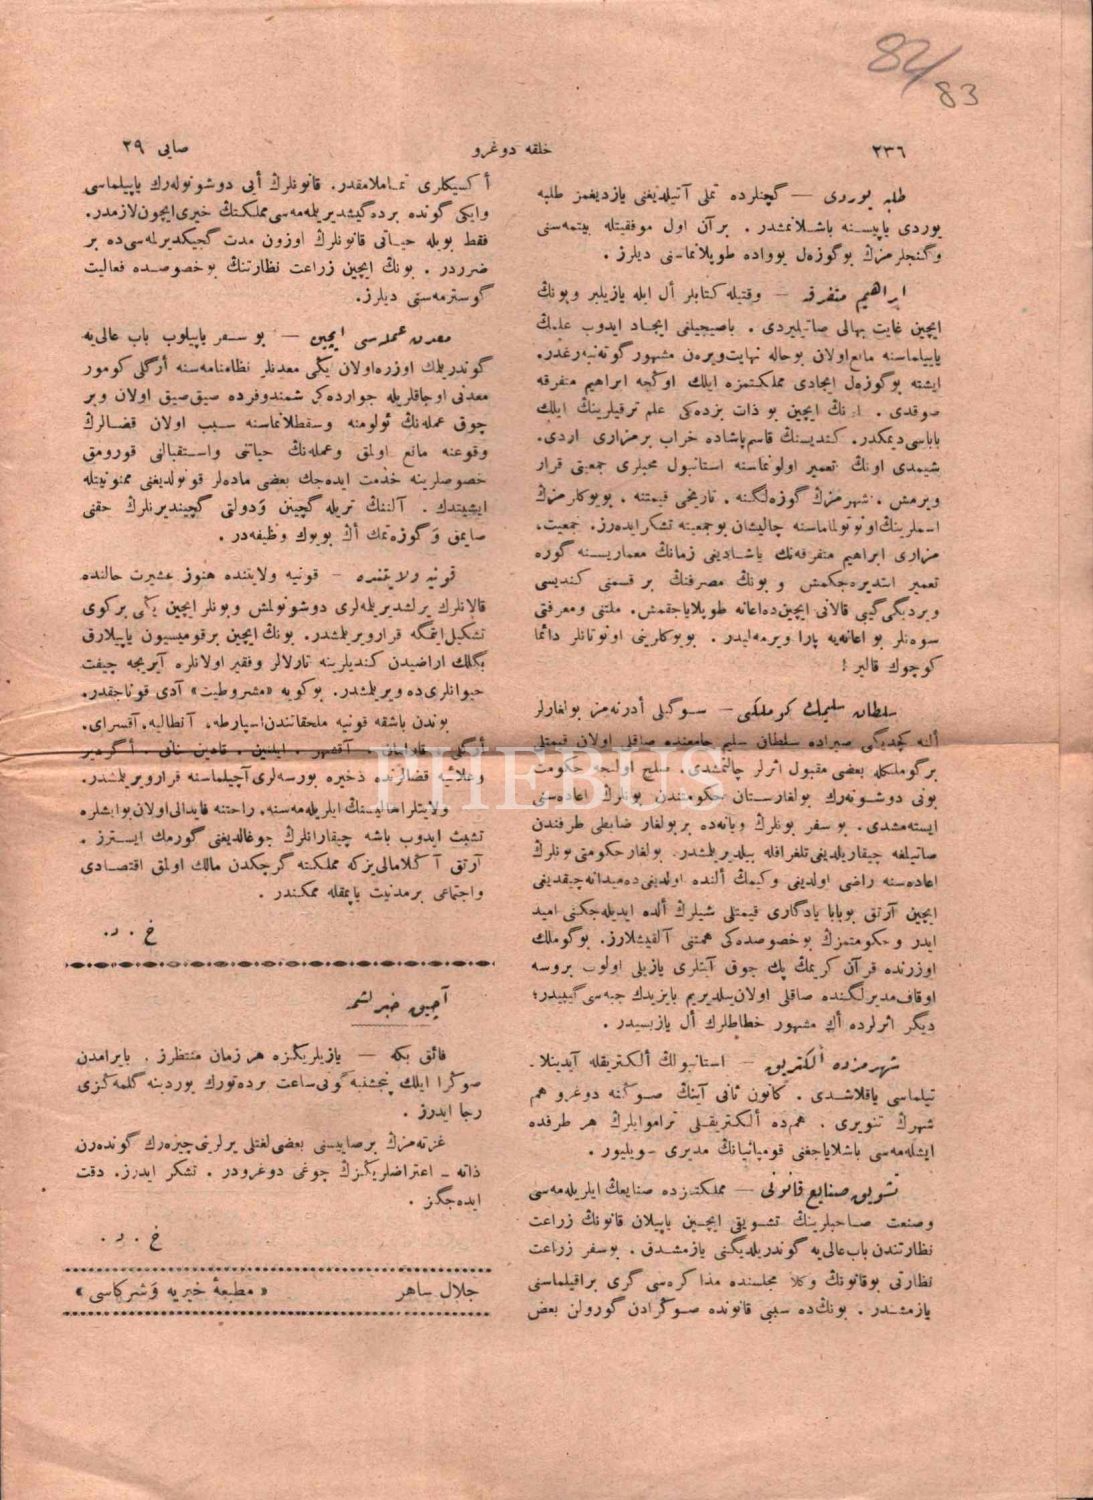 82/83
٢٣٦
خلقه دوغرو
صایی ٢٩
طلبه یوردی — گچنلرده تملی آتیلدیغنی یازدیغمز طلبه
یوردی یاپیسنه باشلانمشدر . برآن اول موفقیتله بیتمه‌سنی
وگنجلرمزڭ بوگوزه‌ل یوواده طوپلانماسنی دیلرز .
ابراهیم متفرقه — وقتیله کتابلر أل ایله یازیلیر وبونڭ
ایچین غایت بهالی صاتیلیردی . باصیجیلغی ایجاد ایدوب علمڭ
یاییلماسنه مانع اولان بوحاله نهایت ویره‌ن مشهور گوته‌نبه‌رغدر.
ایشته بوگوزه‌ل ایجادی مملکتمزه ایلك اوڭجه ابراهیم متفرقه
صوقدی . اونڭ ایچین بو ذات بزده‌کی علم ترقیلرینڭ ایلك
باباسی دیمکدر. کندیسنڭ قاسم‌پاشاده خراب برمزاری اردی.
شیمدی اونڭ تعمیر اولونماسنه استانبول محبلری جمعیتی قرار
ویرمش . شهرمزڭ گوزه‌لگنه ، تاریخی قیمتنه ، بویوکلرمزڭ
اسملرینڭ اونوتولماماسنه چالیشان بوجمعیته تشکر ایده‌رز. جمعیت،
مزاری ابراهیم متفرقه‌نڭ یاشادیغی زمانڭ معماریسنه گوره
تعمیر ایتدیره‌جکمش و بونڭ مصرفنڭ بر قسمنی کندیسی
ویردیگی گیبی قالانی ایچین‌ده اعانه طوپلایاجقمش. ملتنی ومعرفتی
سوه‌نلر بو اعانه‌یه پارا ویرمه‌لیدر . بویوکلرینی اونوتانلر دائما
کوچوك قالیر !
سلطان سلیمڭ گوملگی — سوگیلی أدرنه‌مز بولغارلر
ألنه گچدیگی صیراده سلطان سلیم جامعنده صاقلی اولان قیمتلی
برگوملکله بعضی مقبول اثرلر چالنمشدی. صلح اولنجه حکومت
بونی دوشونه‌رك بولغارستان حکومتندن بونلرڭ اعاده‌سنی
ایسته‌مشدی. بو سفر بونلرڭ ویانه‌ده بر بولغار ضابطی طرفندن
صاتیلغه چیقاریلدیغی تلغرافله بیلدیریلمشدر. بولغار حکومتی بونلرڭ
اعاده‌سنه راضی اولدیغی وکیمڭ ألنده اولدیغی‌ده میدانه چیقدیغی
ایچین آرتق بوبابا یادگاری قیمتلی شیلرڭ ألده ایدیله‌جکنی امید
ایدر و حکومتمزڭ بوخصوصده‌کی همتنی آلقیشلارز. بوگوملك
اوزرنده قرآن کریمڭ پك چوق آیتلری یازیلی اولوب بروسه
اوقاف مدیرلگنده صاقلی اولان ییلدیریم بایزیدڭ جبه‌سی گیبیدر؛
دیگر اثرلرده أڭ مشهور خطاطلرڭ أل یازیسیدر .
شهرمزده ألکتریق — استانبولڭ ألکتریقله آیدینلا.
تیلماسی یاقلاشدی . کانون ثانی آینڭ صوڭنه دوغرو هم
شهرڭ تنویری . هم‌ده ألکتریقلی تراموایلرڭ هر طرفده
ایشله‌مه‌سی باشلایاجغنی قومپانیانڭ مدیری سویلیور .
تشویق صنایع قانونی — مملکتمزده صنایعڭ ایلریله‌مه‌سی
وصنعت صاحبلرینڭ تشویقی ایچین یاپیلان قانونڭ زراعت
نظارتندن باب‌عالی‌یه گوندریلدیگنی یازمشدق . بوسفر زراعت
نظارتی بوقانونڭ وکلا مجلسنده مذاکره‌سی گری براقیلماسنی
یازمشدر . بونڭ‌ده سببی قانونده صوڭرادن گورولن بعض
أکسیکلری تماملامقدر. قانونلرڭ أیی دوشونوله‌رك یاپیلماسی
وایکی گونده برده‌گیشدیریله‌مه‌سی مملکتڭ خیری ایچون لازمدر.
فقط بویله حیاتی قانونلرڭ اوزون مدت گجیکدیرلمه‌سی‌ده بر
ضرردر . بونڭ ایچین زراعت نظارتنڭ بوخصوصده فعالیت
گوسترمه‌سنی دیلرز.
معدن عمله‌سی ایچین — بو سفر یاپیلوب باب عالی‌یه
گوندریلمك اوزره اولان یڭی معدنلر نظامنامه‌سنه أرگلی کومور
معدنی اوجاقلریله جوارده‌کی شمندوفرده صیق‌صیق اولان وبر
چوق عمله‌نڭ ئولومنه وسقطلانماسنه سبب اولان قضالرڭ
وقوعنه مانع اولمق وعمله‌نڭ حیاتنی واستقبالنی قورومق
خصوصلرینه خدمت ایده‌جك بعضی ماده‌لر قونولدیغنی ممنونیتله
ایشیتدك . آلننڭ تریله گچینن وَدولتی گچیندیرنلرڭ حقنی
صایمق وَگوزه‌تمك أڭ بویوك وظیفه‌در .
قونیه ولایتنده — قونیه ولایتنده هنوز عشیرت حالنده
قالانلرڭ یرلشدیریلمه‌لری دوشونولمش وبونلر ایچین یڭی برکوی
تشکیل ایتمگه قرارویریلمشدر. بونڭ ایچین برقومیسیون یاپیلارق
بگلك اراضیدن کندیلرینه تارلالر وفقیر اولانلره آیریجه چیفت
حیوانلری‌ده ویریلمشدر. بوکویه «مشروطیت» آدی قوناجقدر.
بوندن باشقه قونیه ملحقاتندن اسپارطه، آنطالیه، آقسرای،
أرگلی، قارامان، آقشهر، ایلغین، قادین خانی، أگردیر
وعلائیه قضالرنده ذخیره بورسه‌لری آچیلماسنه قرارویریلمشدر.
ولایتلر اهالیسنڭ ایلریله‌مه‌سنه، راحتنه فایدالی اولان بوایشلره
تشبث ایدوب باشه چیقارانلرڭ چوغالدیغنی گورمك ایسترز .
آرتق آڭلامالی‌یز که مملکتنه گرچکدن مالك اولمق اقتصادی
واجتماعی برمدنیت یاپمقله ممکندر .
خ . د.
آچیق خبرلشمه
فائق بکه — یازیلریڭزه هر زمان منتظرز . بایرامدن
صوڭرا ایلك پنجشنبه گونی ساعت برده تورك یوردینه گلمه‌ڭزی
رجا ایدرز .
غزته‌مزڭ برصاییسنی بعضی لغتلی یرلرینی چیزه‌رك گونده‌رن
ذاته — اعتراضلریڭزڭ چوغی دوغرودر . تشکر ایدرز. دقت
ایده‌جگز .
خ . د .
جلال ساهر
« مطبعهٔ خیریه وَشرکاسی »
PHEBUS